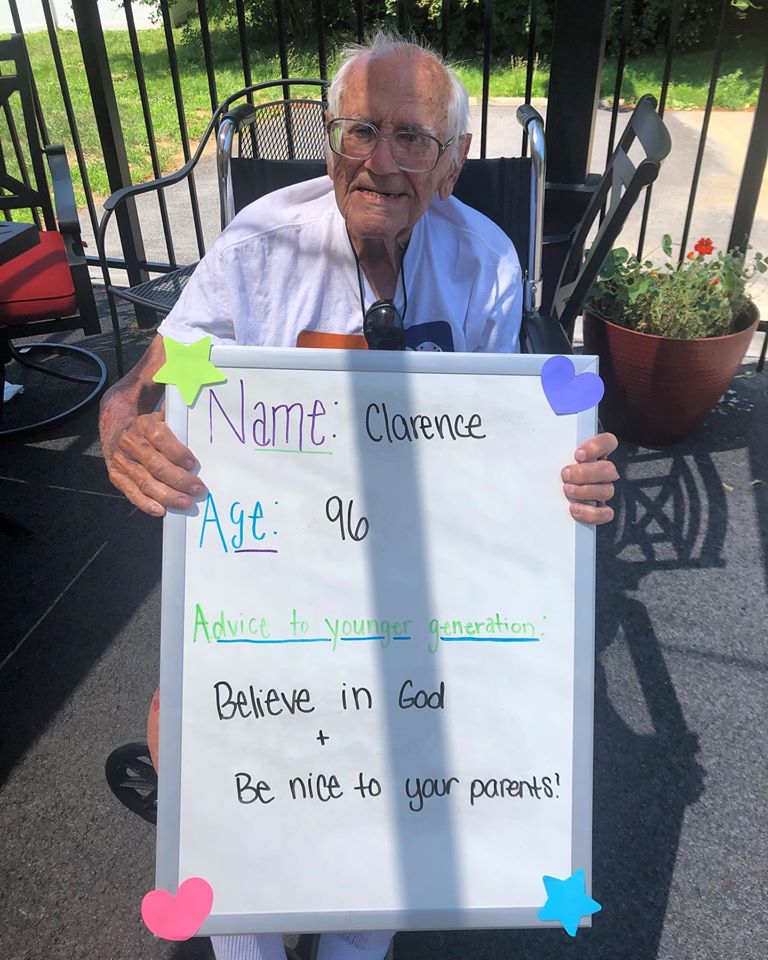 Name: Clarence
Age: 96
Advice to younger generation:
Believe in God
+
Be nice to your parents!